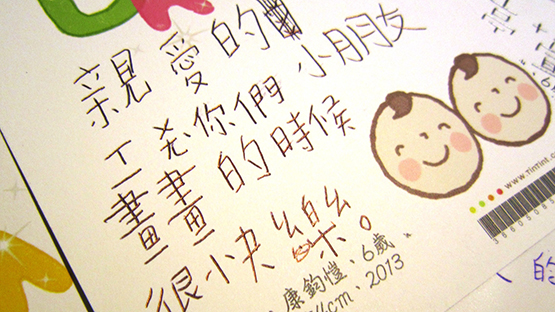 親愛的小朋友
你們
畫畫的時候
很快樂。
康鈞愷、6歲、
cm、2013
www.TinTint
的